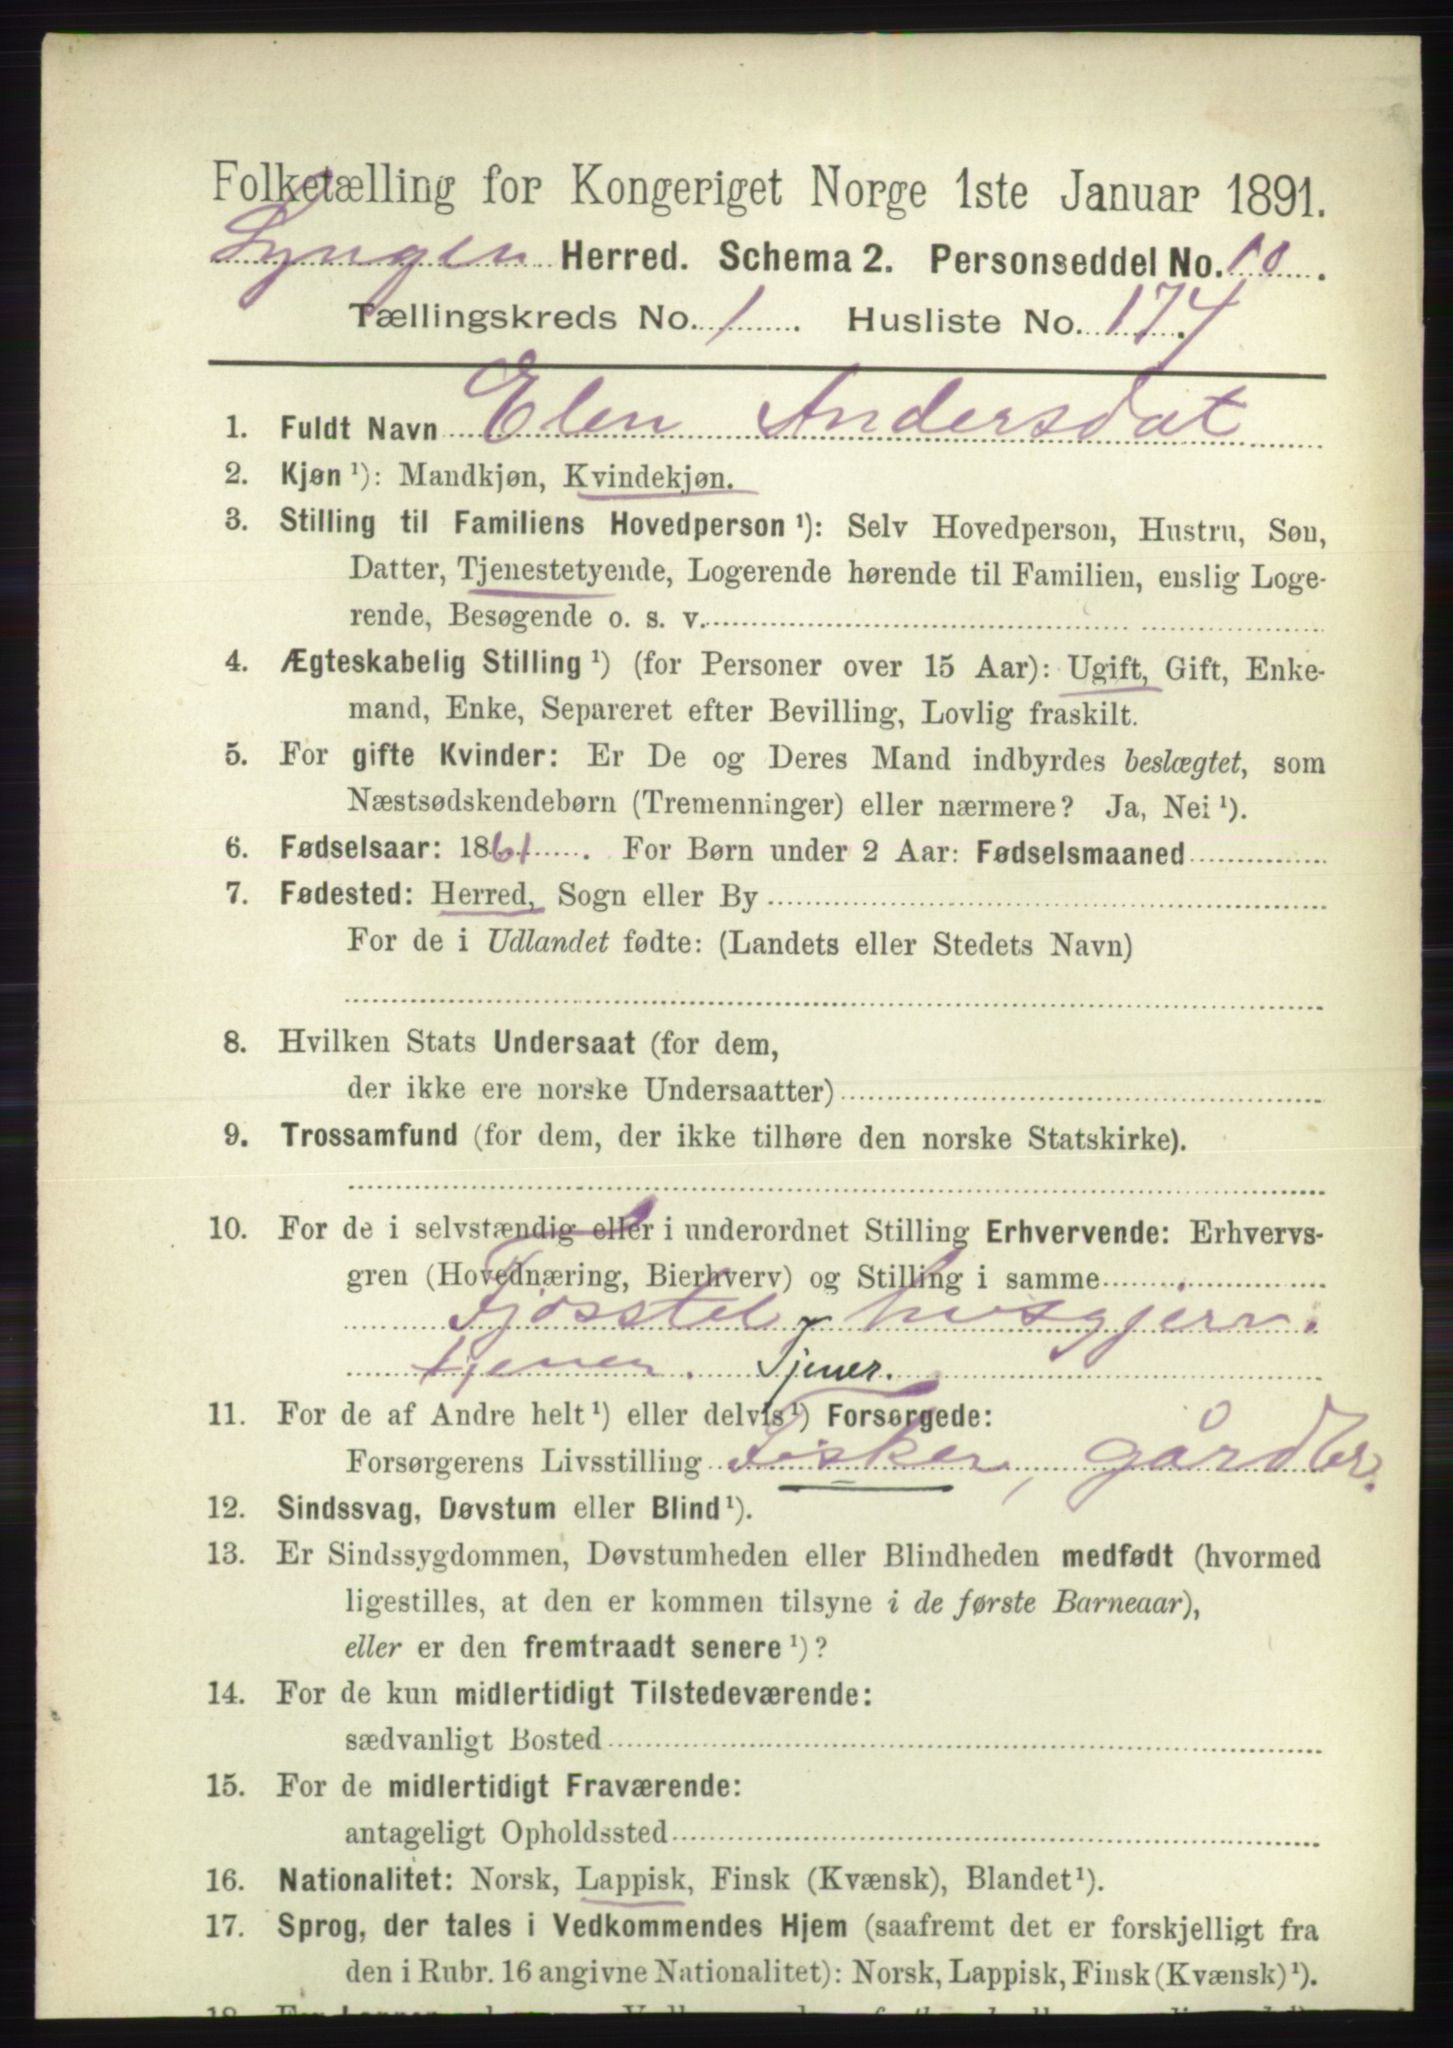 Folketælling for Kongeriget Norge 1ste Januar 1891.
Lyngen Herred. Schema 2. Personseddel No. 10.
Tællingskreds No. 1. Husliste No. 174.
1. Fuldt Navn Elen Andersdat
2. Kjøn ¹): Mandkjøn, Kvindekjøn.
3. Stilling til Familiens Hovedperson ¹): Selv Hovedperson, Hustru, Søn,
Datter, Tjenestetyende, Logerende hørende til Familien, enslig Loge-
rende, Besøgende o. s. v.
4. Ægteskabelig Stilling ¹) (for Personer over 15 Aar): Ugift, Gift, Enke-
mand, Enke, Separeret efter Bevilling, Lovlig fraskilt.
5. For gifte Kvinder: Er De og Deres Mand indbyrdes beslægtet, som
Næstsødskendebørn (Tremenninger) eller nærmere? Ja, Nei ¹).
6. Fødselsaar: 1861. For Børn under 2 Aar: Fødselsmaaned
7. Fødested: Herred, Sogn eller By
For de i Udlandet fødte: (Landets eller Stedets Navn)
8. Hvilken Stats Undersaat (for dem,
der ikke ere norske Undersaatter)
9. Trossamfund (for dem, der ikke tilhøre den norske Statskirke).
10. For de i selvstændig eller i underordnet Stilling Erhvervende: Erhvervs-
gren (Hovednæring, Bierhverv) og Stilling i samme
Fjösstel y husgjerv.
tjener. Tjener.
11. For de af Andre helt ¹) eller delvis ¹) Forsørgede:
Forsørgerens Livsstilling Fisker, gårdbr.
12. Sindssvag, Døvstum eller Blind ¹).
13. Er Sindssygdommen, Døvstumheden eller Blindheden medfødt (hvormed
ligestilles, at den er kommen tilsyne i de første Barneaar),
eller er den fremtraadt senere ¹)?
14. For de kun midlertidigt Tilstedeværende:
sædvanligt Bosted
15. For de midlertidigt Fraværende:
antageligt Opholdssted
16. Nationalitet: Norsk, Lappisk, Finsk (Kvænsk), Blandet ¹).
17. Sprog, der tales i Vedkommendes Hjem (saafremt det er forskjelligt fra
den i Rubr. 16 angivne Nationalitet): Norsk, Lappisk, Finsk (Kvænsk) ¹).